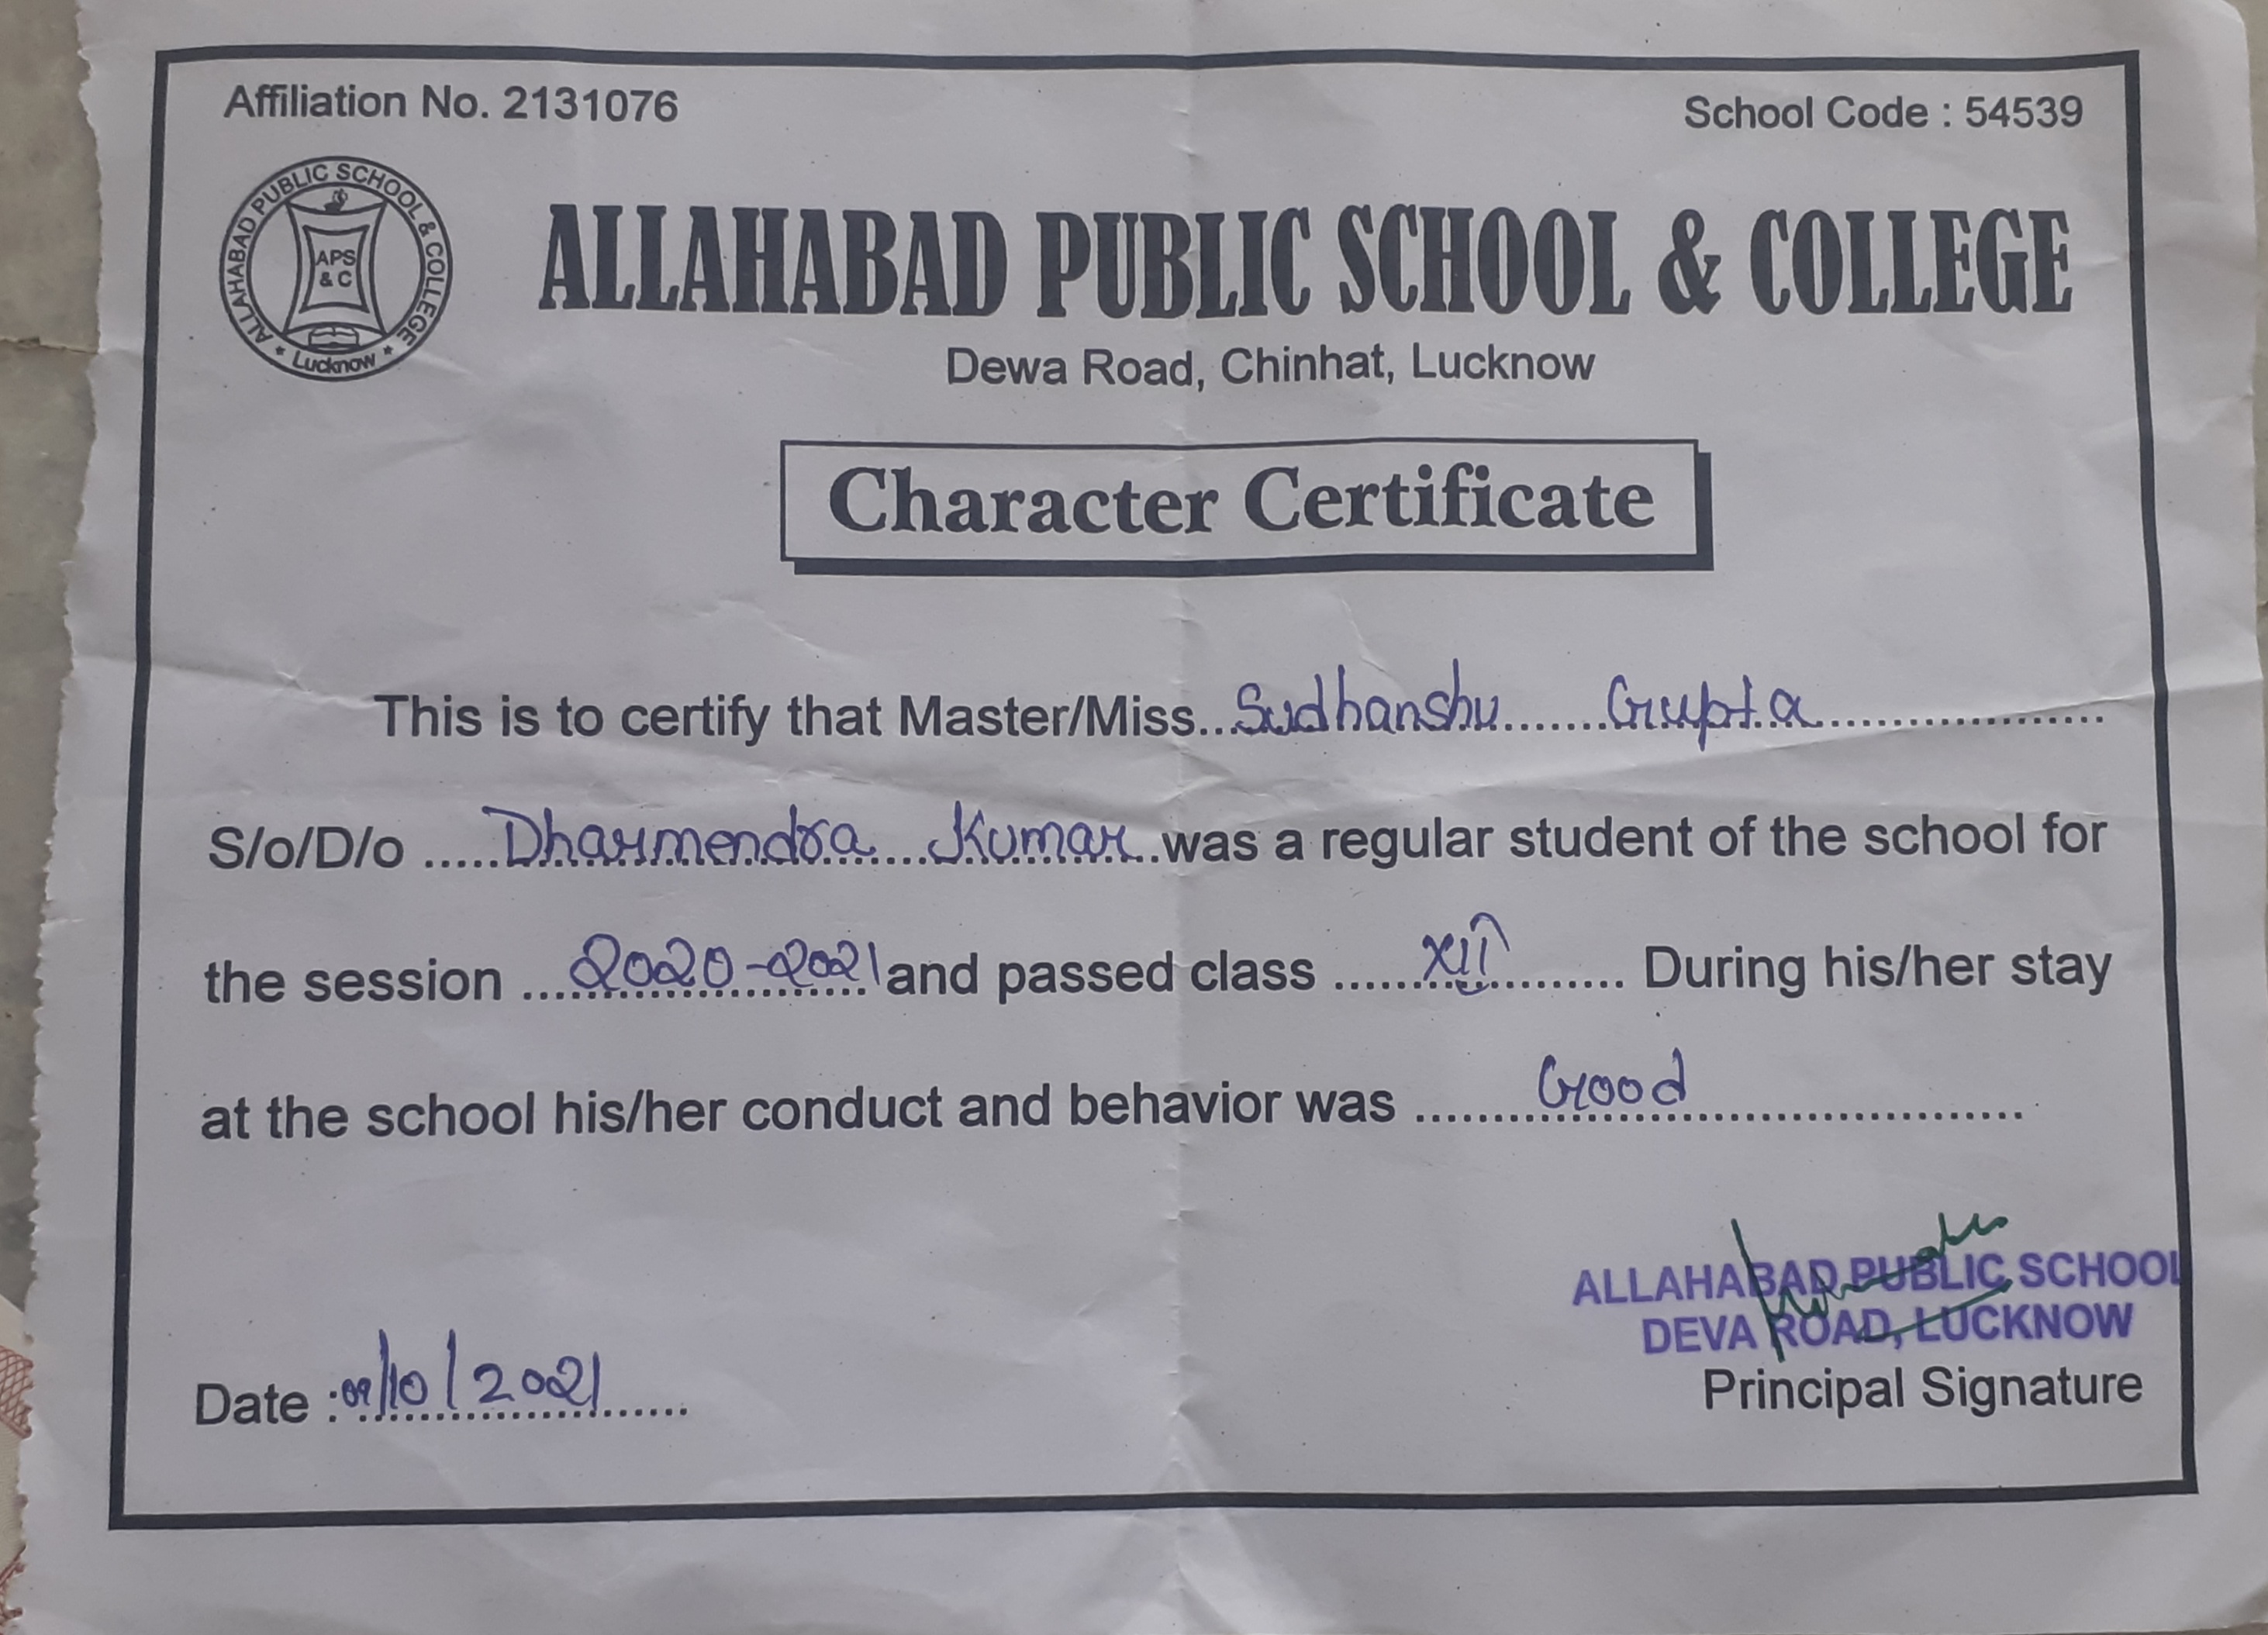 Affiliation No. 2131076
School Code : 54539
ALLAHABAD PUBLIC SCHOOL & COLLEGE
APS
& C
★ Lucknow ★
ALLAHABAD PUBLIC SCHOOL & COLLEGE
Dewa Road, Chinhat, Lucknow
Character Certificate
This is to certify that Master/Miss...Sudhanshu.......Gupta....................
S/o/D/o .....Dharmendra.......Kumar..was a regular student of the school for
the session ...2020-2021 and passed class ........XII.......... During his/her stay
at the school his/her conduct and behavior was .........Good.........................
ALLAHABAD PUBLIC SCHOOL
DEVA ROAD, LUCKNOW
Date :09/10/2021......
Principal Signature